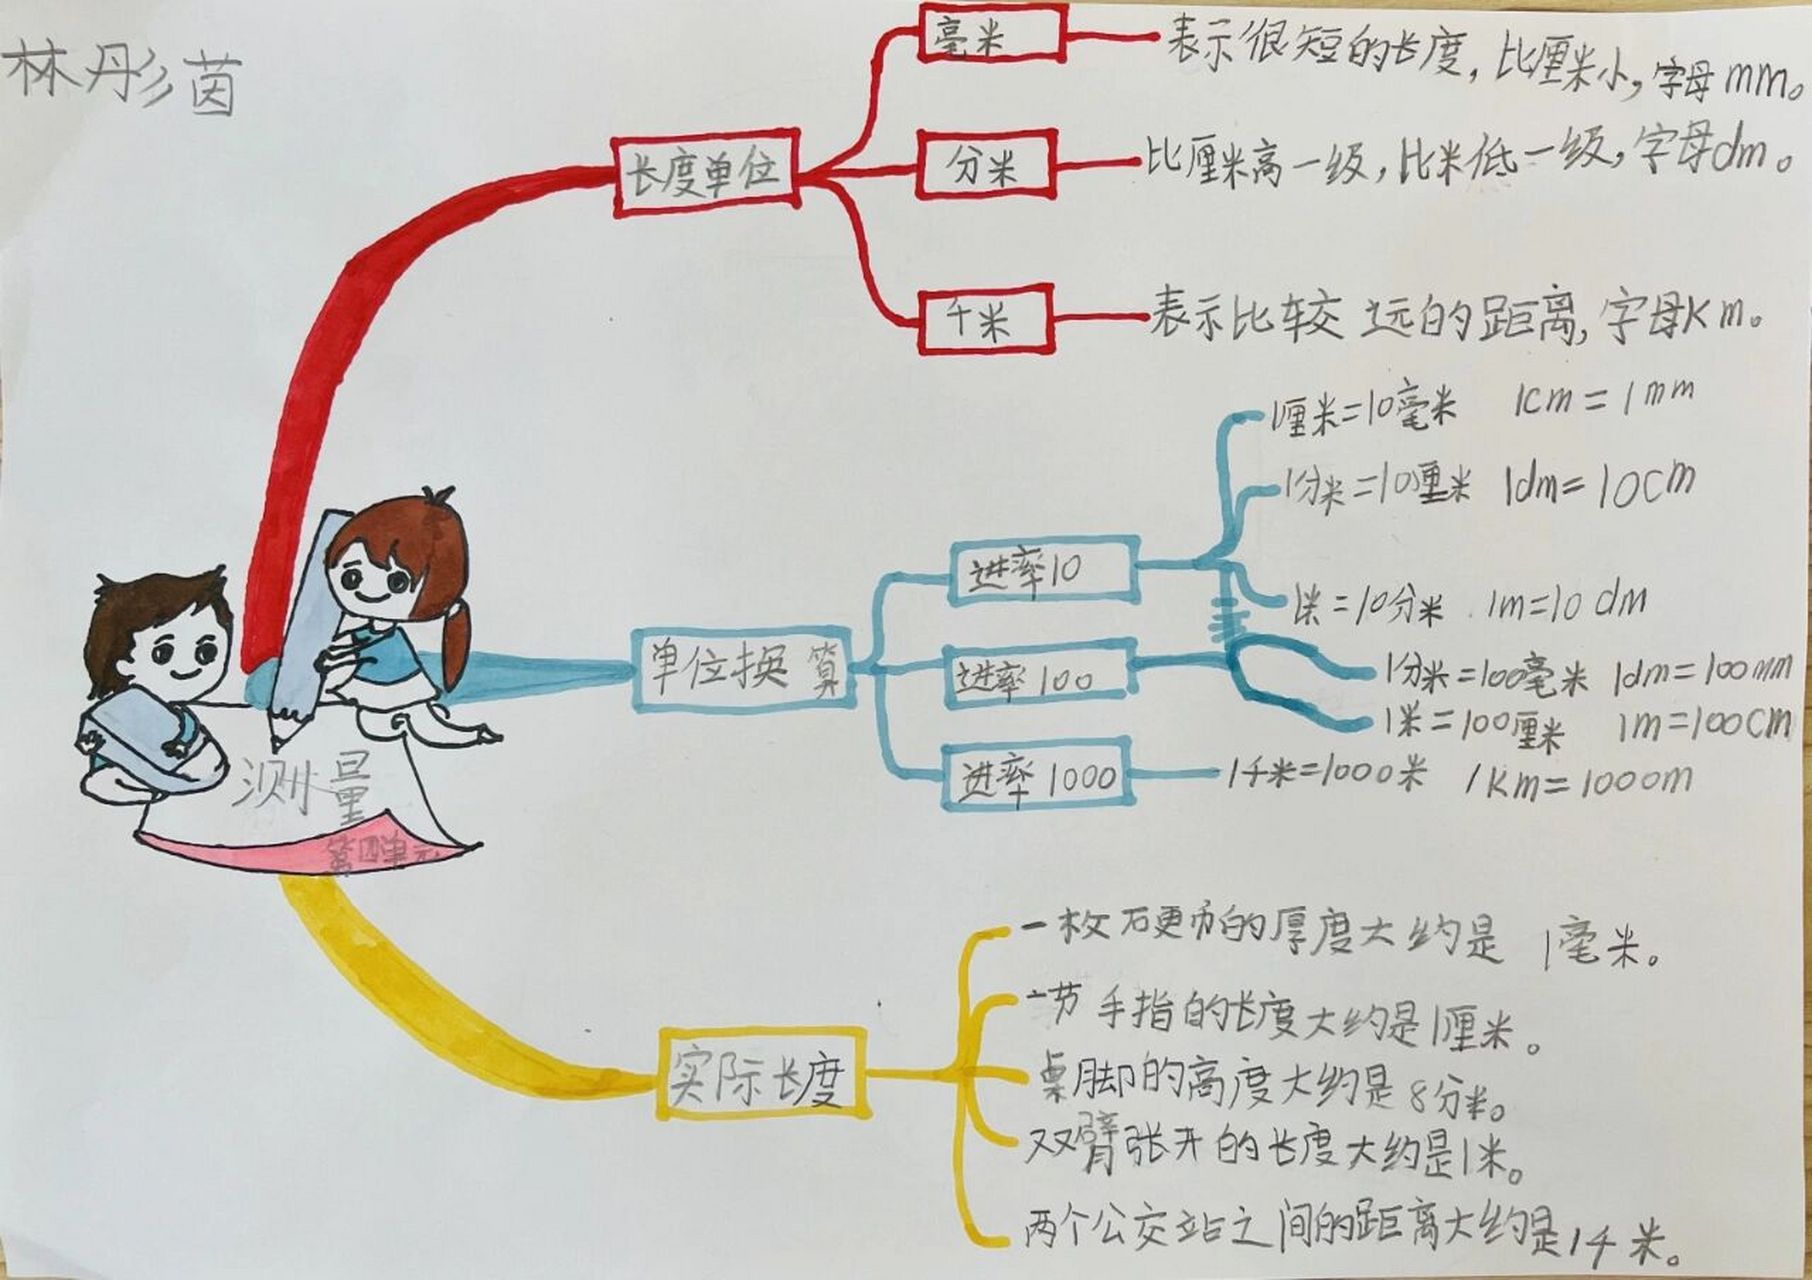 林彤茵
毫米
表示很短的长度，比厘米小，字母mm。
长度单位
分米
比厘米高一级，比米低一级，字母dm。
千米
表示比较远的距离，字母Km。
1厘米=10毫米 1cm=1mm
1分米=10厘米 1dm=10cm
进率10
1米=10分米 1m=10dm
单位换算
进率100
1分米=100毫米 1dm=100mm
1米=100厘米 1m=100cm
进率1000
1千米=1000米 1Km=1000m
测量
第四单元
一枚硬币的厚度大约是 1毫米。
一节手指的长度大约是1厘米。
实际长度
桌脚的高度大约是8分米。
双臂张开的长度大约是1米。
两个公交站之间的距离大约是1千米。